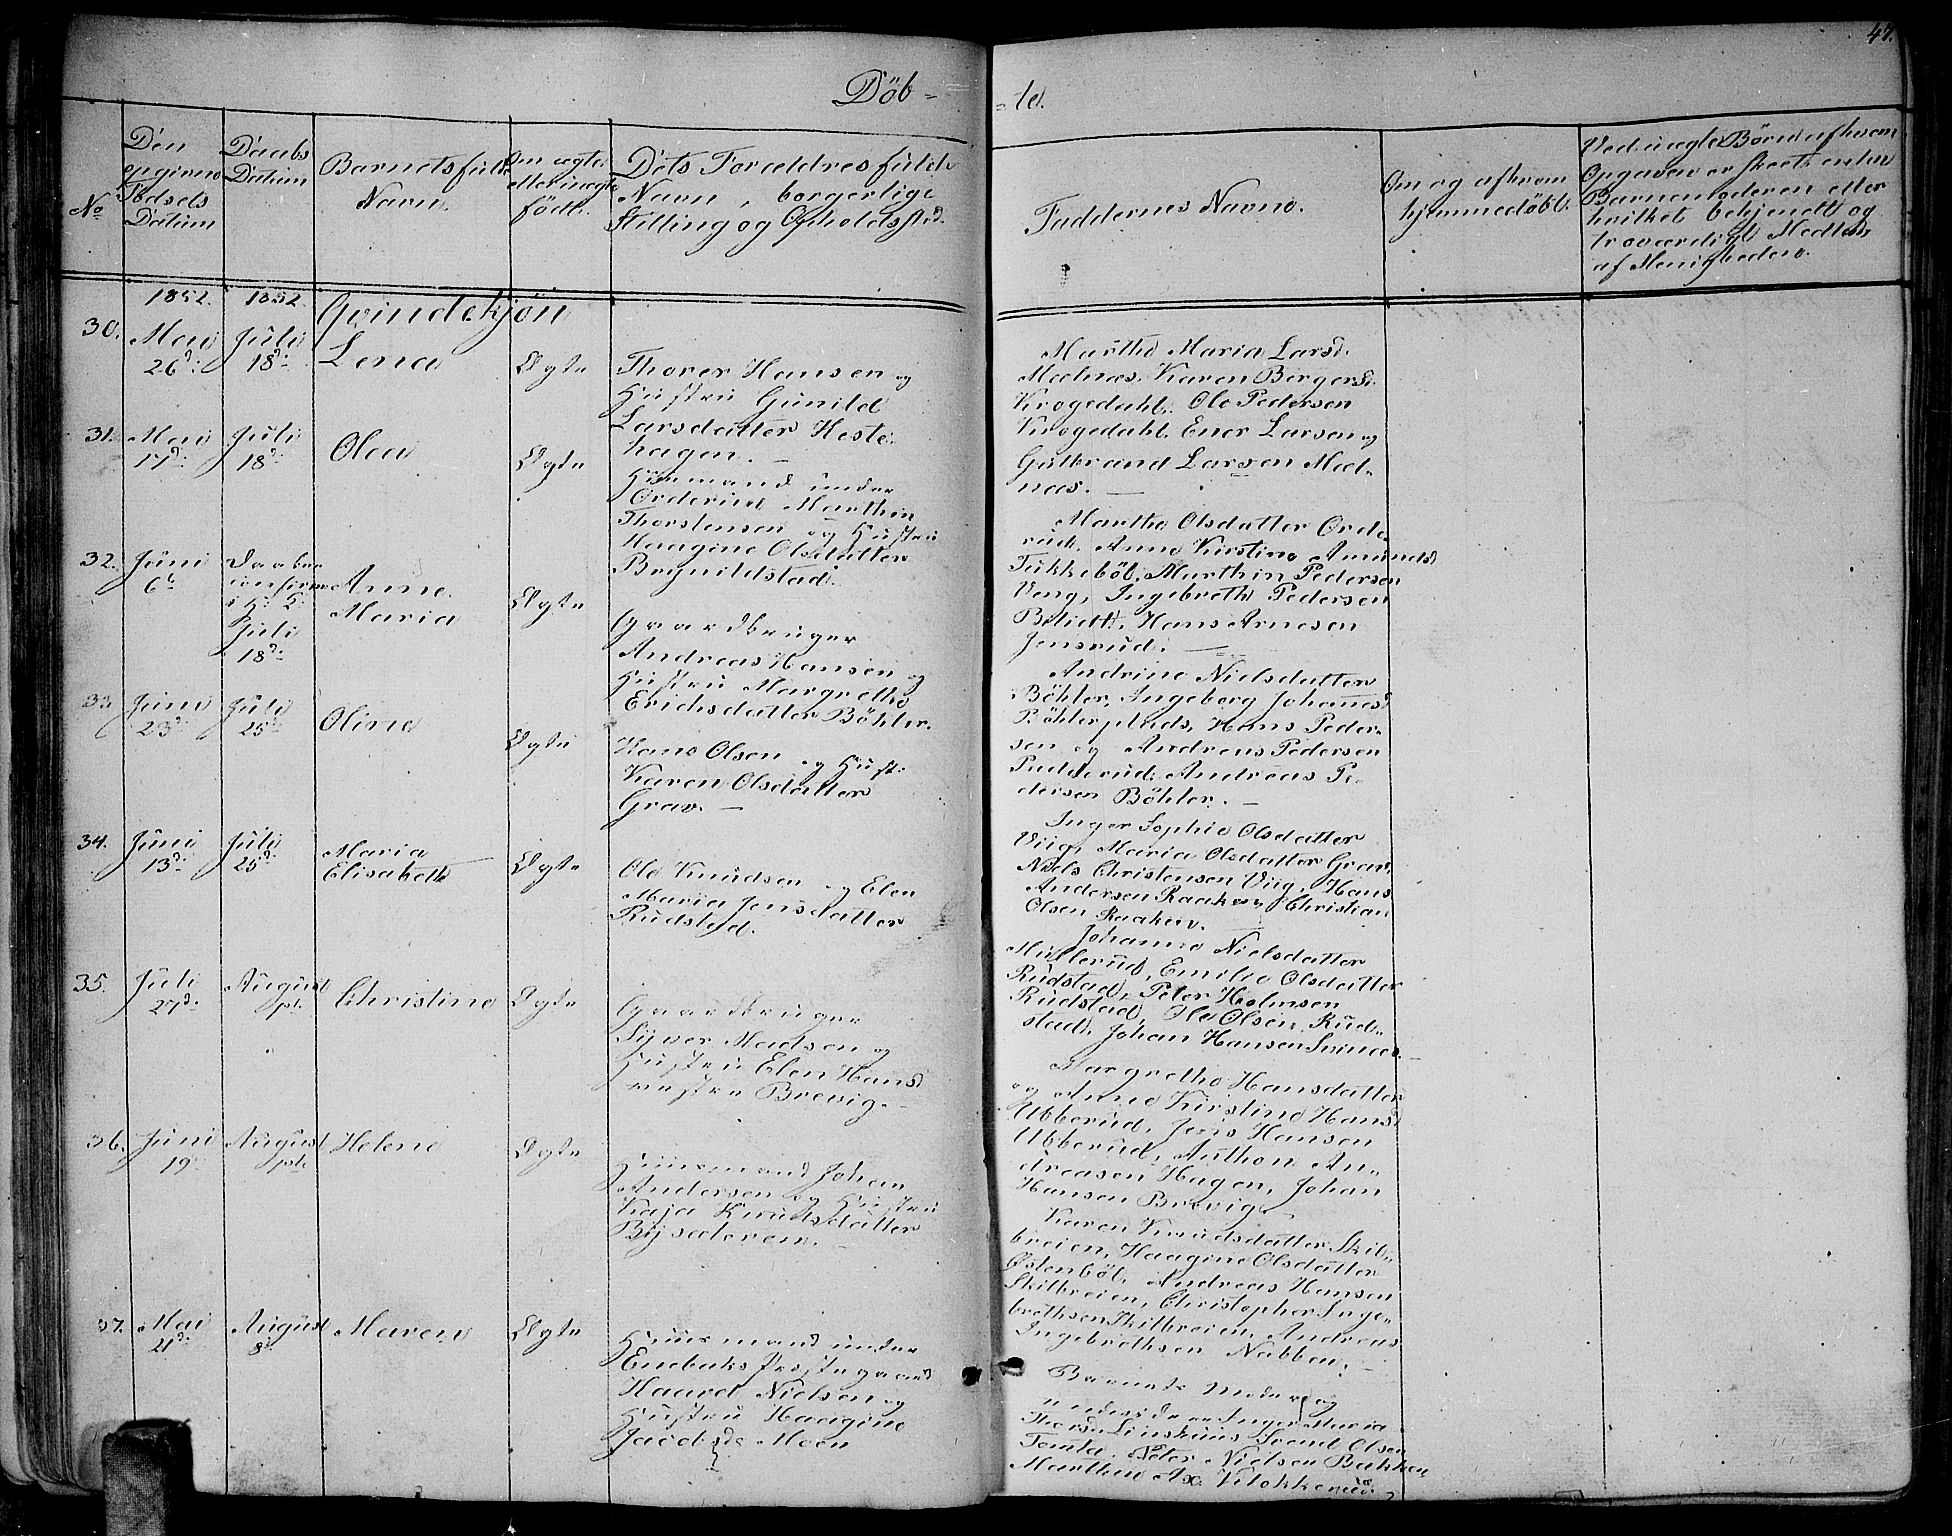 47.
Döb-
-te.
No
Den
opgivne
Fødsels
Datum
Daabs
Datum
Barnets fulde
Navn.
Om ægte
eller uægte
født.
Dets Forældres fulde
Navn, borgerlige
Stilling og Opholdssted.
Faddernes Navne.
Om og af hvem
hjemmedöbt.
Ved uægte Börn af hvem
Opgaven er skeet: enten
Barnemoderen eller
hvilket bekjendt og
troværdigt Medlem
af Menigheden.
1852. 1852. Qvindekjön
30.
Mai
26d:
Juli
18d:
Lena
Ægte
Thorer Hansen og
Hustru Gunild
Larsdatter Heste-
hagen. —
Marthe Maria Larsd.
Melnæs. Karen Bergersd.
Krogedahl. Ole Pedersen
Krogedahl. Ener Larsen og
Gulbrand Larsen Mel-
næs. —
31.
Mai
17d:
Juli
18d:
Olea
Ægte
Huusmand under
Orderud Marthin
Thorstensen og Hustru
Haagine Olsdatter
Brynildstad.
Marthe Olsdatter Orde-
rud, Anne Kirstine Amundsd
Tukkeböl, Marthin Pedersen
Veng, Ingebreth Pedersen
Hans Arnesen
Jensrud. —
32.
Juni
6t
Daaben
confirm:
i H: K:
Juli
18d:
Anne
Maria
Ægte
Gaardbruger
Andreas Hansen og
Hustru Margrethe
Erichsdatter Böhler.
Andrine Nielsdatter
Böhler, Ingeborg Johannesd
Böhlerplads, Hans Peder-
sen og Andreas Pedersen
Padderud. Andreas Pe-
dersen Böhler. —
33.
Juni
23d:
Juli
25d:
Oline
Ægte
Hans Olsen og Hust:
Karen Olsdatter
Grav. —
Inger Sophie Olsdatter
Viig, Maria Olsdatter Grav,
Niels Christensen Viig, Hans
Andersen Raaken, Christian
Olsen Raaken.
34.
Juni
13d:
Juli
25d:
Maria
Elisabeth
Ægte
Ole Knudsen og Elen
Maria Jensdatter
Rudstad.
Johanne Nielsdatter
Emilie Olsdatter
Rudstad, Peter Holmsen
Rudstad, Ole Olsen Rud-
stad, Johan Hansen
35.
Juli
27d:
August
1ste
Christine
Ægte
Gaardbruger
Syver Madsen og
Hustru Elen Hansd
Brevig. —
Margrethe Hansdatter
og Anne Kirstine Hansd
Ubberud, Jens Hansen
Ubberud, Anthon An-
dreasen Hagen, Johan
Hansen Brevig.
36.
Juni
19
August
1ste
Helene
Ægte
Huusmand Johan
Andersen og Hustru
Kaja Knudsdatter
Bysæteren. —
Karen Knudsdatter Skil-
breien, Haagine Olsdatter
Østenböl, Andreas Hansen
Skilbreien, Christopher Inge-
brethsen Skilbreien, Andreas
Ingebrethsen Nabben. —
37.
Mai
21d:
August
8d:
Maren
Ægte
Huusmand under
Enebaks Præstegaard
Haard Nielsen og
Hustru Haagine
Moen
Barnets Moder og
Inger Maria
Svend Olsen
Tomta. Peter Nielsen Bakken
Marthin